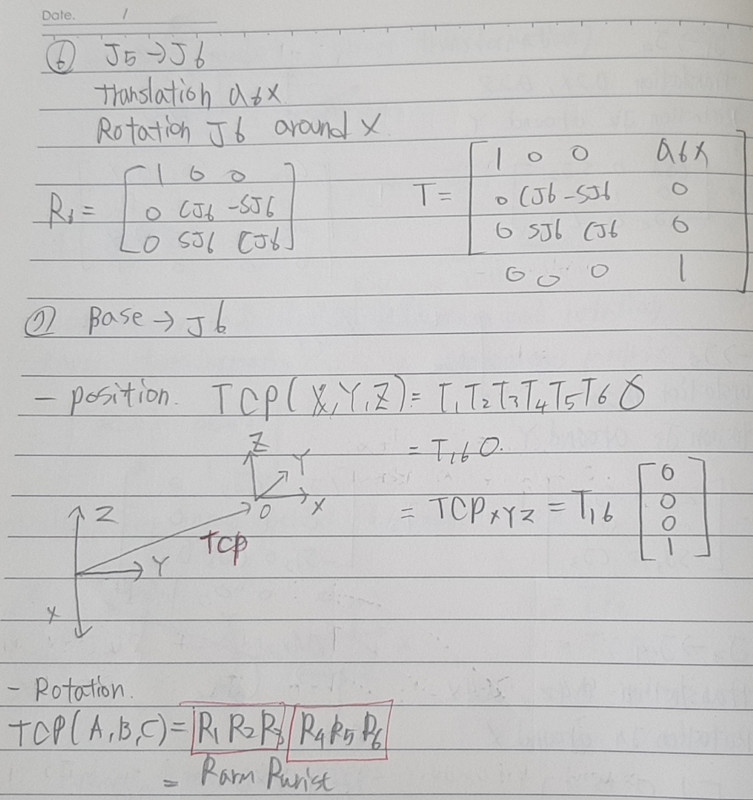 Date. /
⑥ J5 → J6
translation a6x
Rotation J6 around X
R6 = [1 0 0
0 CJ6 -SJ6
0 SJ6 CJ6]
T = [1 0 0 a6x
0 CJ6 -SJ6 0
0 SJ6 CJ6 0
0 0 0 1]
⑦ Base → J6
- position. TCP(X,Y,Z) = T1 T2 T3 T4 T5 T6 O
= T1,6 O.
= TCPXYZ = T1,6 [0
0
0
1]
Z
Y
X
O
Z
Y
X
TCP
- Rotation.
TCP(A,B,C) = R1 R2 R3 R4 R5 R6
= Rarm Rwrist